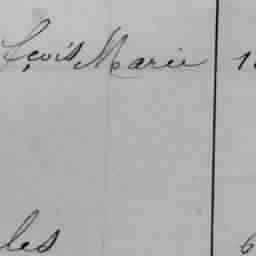 çois Marie 1
les 6